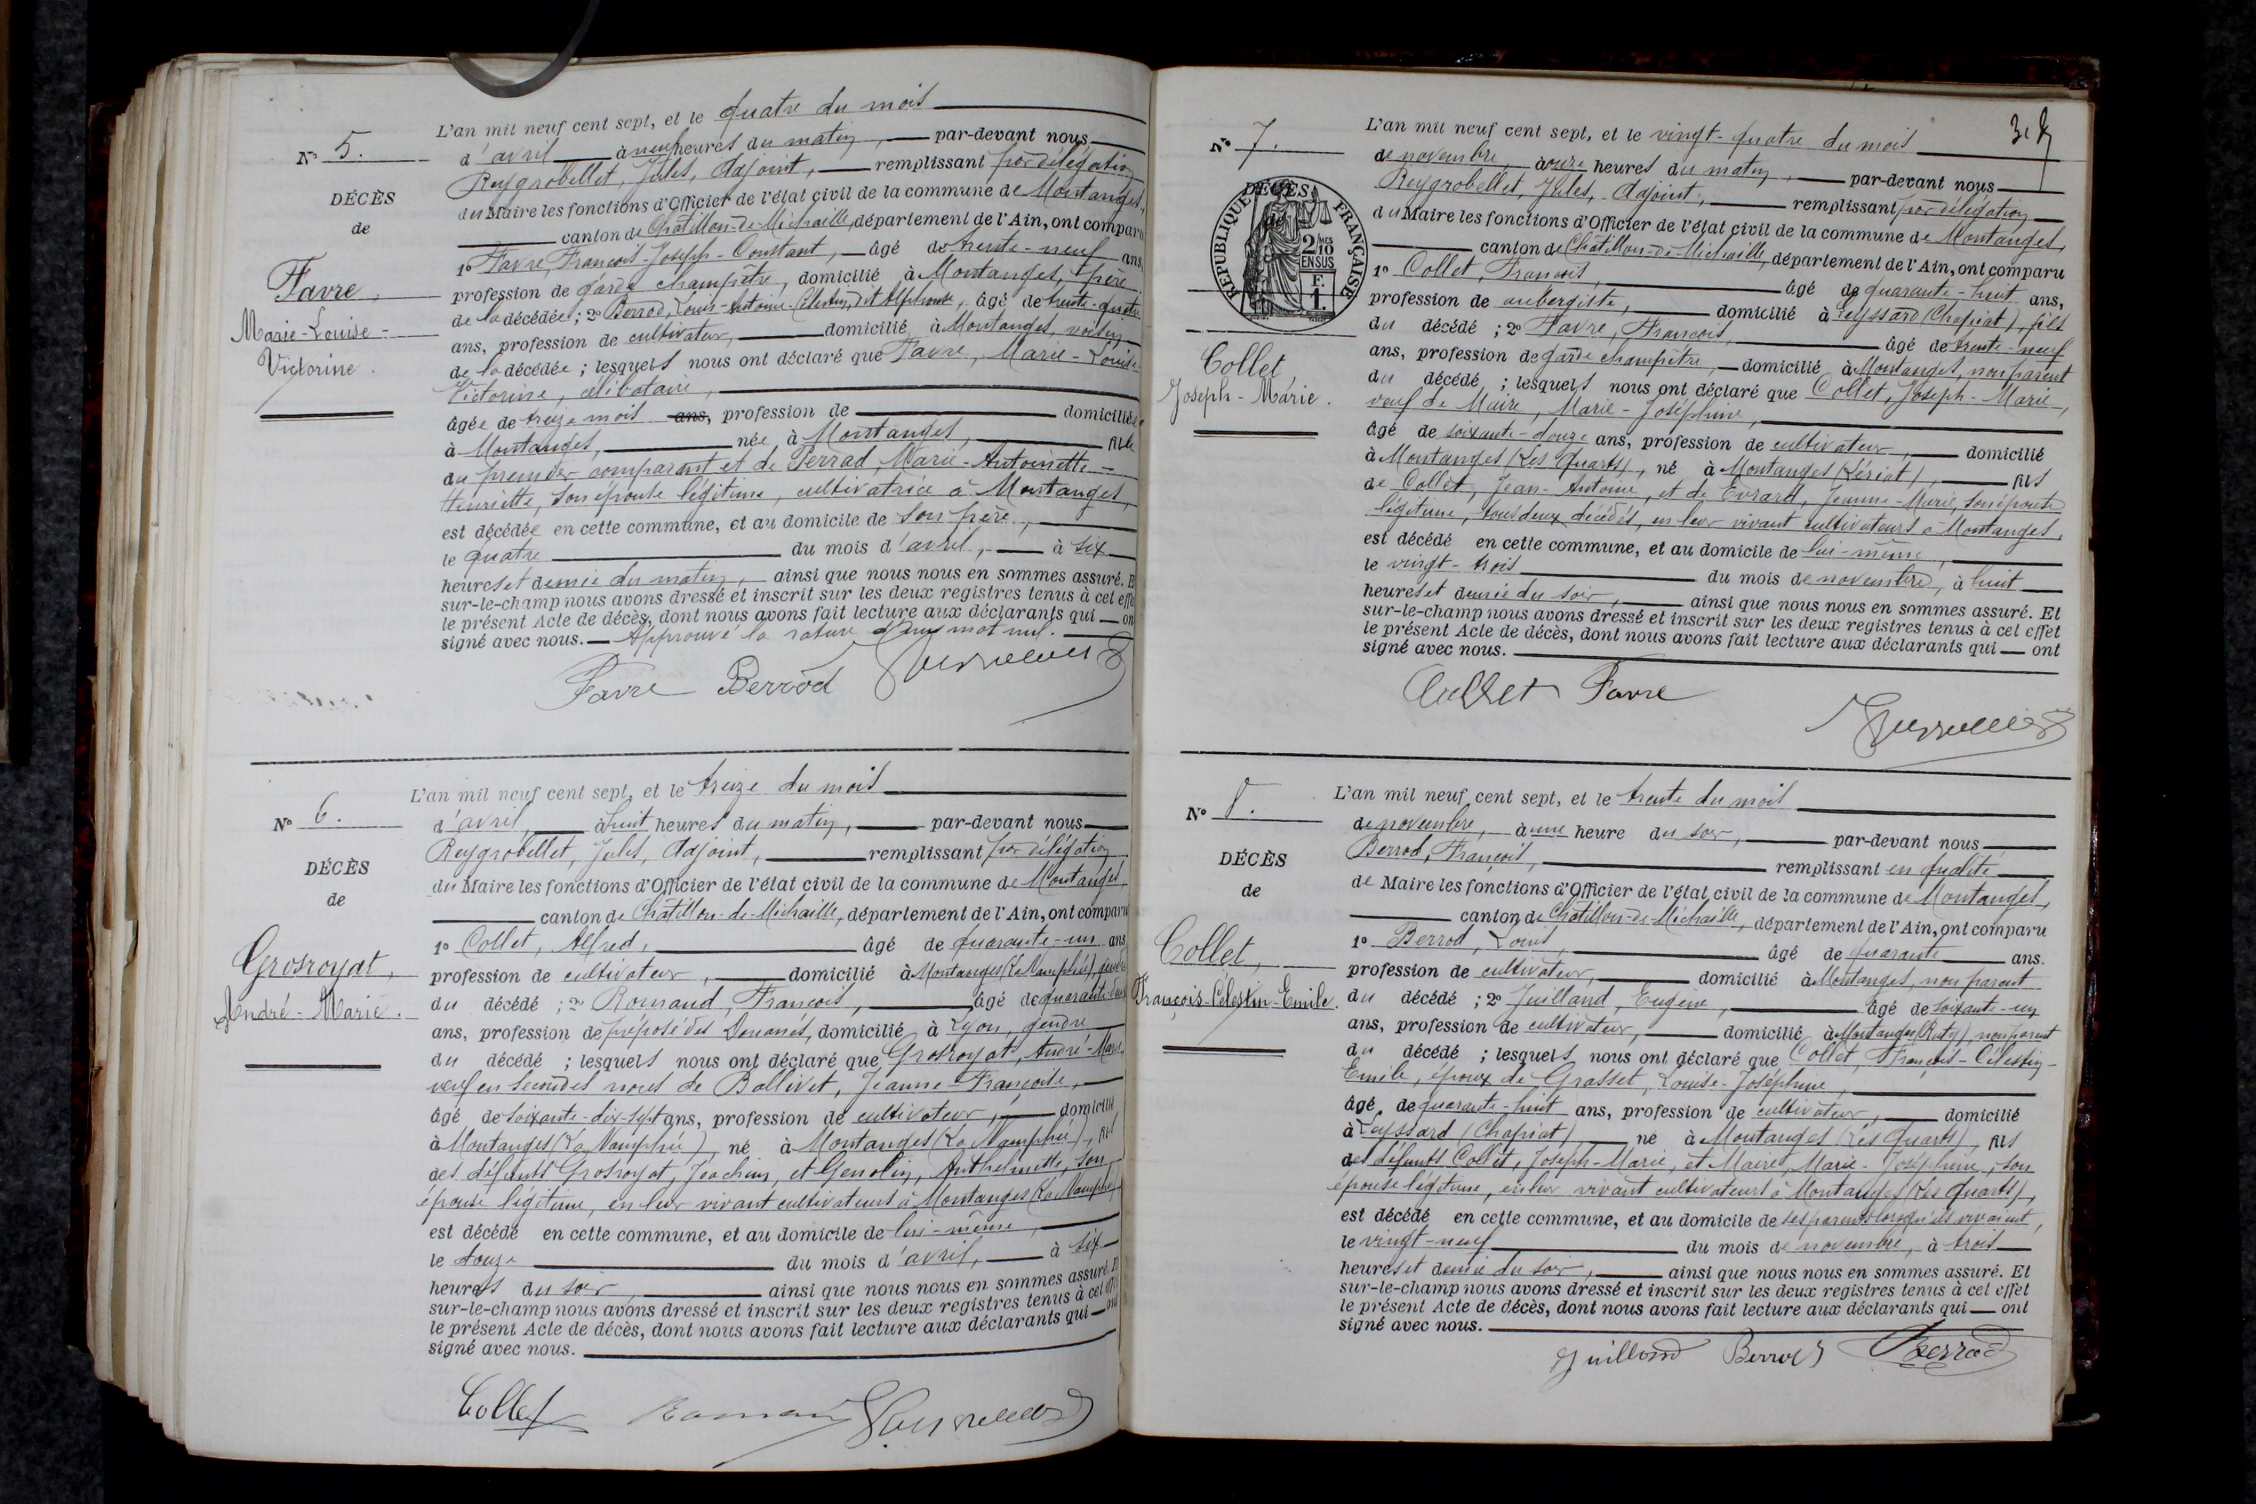 N° 5.
DÉCÈS
de
Favre,
Marie-Louise-
Victorine.
L'an mil neuf cent sept, et le quatre du mois
d'avril à neuf heures du matin, par-devant nous
Reygrobellet, Jules, Adjoint, remplissant par délégation
du Maire les fonctions d'Officier de l'état civil de la commune de Montanges,
canton de Châtillon-de-Michaille, département de l'Ain, ont comparu
1° Favre, François-Joseph-Constant, âgé de trente-neuf ans,
profession de garde champêtre, domicilié à Montanges, père
de la décédée; 2° Berrod, Louis-Antoine-Célestin, dit Alphonse, âgé de trente-quatre
ans, profession de cultivateur, domicilié à Montanges, voisin
de la décédée; lesquels nous ont déclaré que Favre, Marie-Louise-
Victorine, célibataire,
âgée de treize mois ans, profession de domiciliée
à Montanges, née à Montanges, fille
du premier comparant et de Perrad, Marie-Antoinette-
Henriette, son épouse légitime, cultivatrice à Montanges,
est décédée en cette commune, et au domicile de son père,
le quatre du mois d'avril, à six
heures et demie du matin, ainsi que nous nous en sommes assuré. Et
sur-le-champ nous avons dressé et inscrit sur les deux registres tenus à cet effet
le présent Acte de décès, dont nous avons fait lecture aux déclarants qui ont
signé avec nous. Approuvé la rature d'un mot nul.
Favre Berrod
N° 6.
DÉCÈS
de
Grosroyat,
André-Marie.
L'an mil neuf cent sept, et le treize du mois
d'avril, à huit heures du matin, par-devant nous
Reygrobellet, Jules, Adjoint, remplissant par délégation
du Maire les fonctions d'Officier de l'état civil de la commune de Montanges,
canton de Châtillon-de-Michaille, département de l'Ain, ont comparu
1° Collet, Alfred, âgé de quarante-un ans
profession de cultivateur, domicilié à Montanges (La Mamphée), gendre
du décédé; 2° Romand, François, âgé de quarante-deux
ans, profession de préposé des Douanes, domicilié à Lyon, gendre
du décédé; lesquels nous ont déclaré que Grosroyat, André-Marie,
veuf en secondes noces de Ballivet, Jeanne-Françoise,
âgé de soixante-dix-sept ans, profession de cultivateur, domicilié
à Montanges (La Mamphée), né à Montanges (La Mamphée), fils
des défunts Grosroyat, Joachim, et Genolin, Anthelmette, son
épouse légitime, en leur vivant cultivateurs à Montanges (La Mamphée),
est décédé en cette commune, et au domicile de lui-même,
le douze du mois d'avril, à six
heures du soir, ainsi que nous nous en sommes assuré. Et
sur-le-champ nous avons dressé et inscrit sur les deux registres tenus à cet effet
le présent Acte de décès, dont nous avons fait lecture aux déclarants qui ont
signé avec nous.
Collet
N° 7.
DÉCÈS
de
RÉPUBLIQUE FRANÇAISE
2 MES
10
EN SUS
1 F.
Collet
Joseph-Marie.
L'an mil neuf cent sept, et le vingt-quatre du mois
de novembre, à onze heures du matin, par-devant nous
Reygrobellet, Jules, Adjoint, remplissant par délégation
du Maire les fonctions d'Officier de l'état civil de la commune de Montanges,
canton de Châtillon-de-Michaille, département de l'Ain, ont comparu
1° Collet, François, âgé de quarante-huit ans,
profession de aubergiste, domicilié à Leyssard (Chapiat), fils
du décédé; 2° Favre, François, âgé de trente-neuf
ans, profession de garde champêtre, domicilié à Montanges, non parent
du décédé; lesquels nous ont déclaré que Collet, Joseph-Marie,
veuf de Maire, Marie-Joséphine,
âgé de soixante-douze ans, profession de cultivateur, domicilié
à Montanges (Les Quarts), né à Montanges (Lériat), fils
de Collet, Jean-Antoine, et de Evrard, Jeanne-Marie, son épouse
légitime, tous deux décédés, en leur vivant cultivateurs à Montanges,
est décédé en cette commune, et au domicile de lui-même,
le vingt-trois du mois de novembre, à huit
heures et demie du soir, ainsi que nous nous en sommes assuré. Et
sur-le-champ nous avons dressé et inscrit sur les deux registres tenus à cet effet
le présent Acte de décès, dont nous avons fait lecture aux déclarants qui ont
signé avec nous.
Collet Favre
N° 8.
DÉCÈS
de
Collet,
François-Célestin-Emile.
L'an mil neuf cent sept, et le trente du mois
de novembre, à une heure du soir, par-devant nous
Berrod, François, remplissant en qualité
de Maire les fonctions d'Officier de l'état civil de la commune de Montanges,
canton de Châtillon-de-Michaille, département de l'Ain, ont comparu
1° Berrod, Louis, âgé de quarante ans.
profession de cultivateur, domicilié à Montanges, non parent
du décédé; 2° Juilland, Eugène, âgé de soixante-un
ans, profession de cultivateur, domicilié à Montanges, non parent
du décédé; lesquels nous ont déclaré que Collet, François-Célestin-
Emile, époux de Grasset, Louise-Joséphine,
âgé de quarante-huit ans, profession de cultivateur, domicilié
à Leyssard (Chapiat), né à Montanges (Les Quarts), fils
des défunts Collet, Joseph-Marie, et Maire, Marie-Joséphine, son
épouse légitime, en leur vivant cultivateurs à Montanges (Les Quarts),
est décédé en cette commune, et au domicile de ses parents lorsqu'ils vivaient,
le vingt-neuf du mois de novembre, à trois
heures et demie du soir, ainsi que nous nous en sommes assuré. Et
sur-le-champ nous avons dressé et inscrit sur les deux registres tenus à cet effet
le présent Acte de décès, dont nous avons fait lecture aux déclarants qui ont
signé avec nous.
Juilland Berrod Berrod